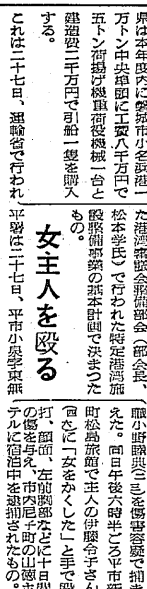 県は本年度内に磐城市小名浜港一
万トン中央阜頭に工費八千万円で
五トン荷揚げ機重荷役機械一台と
建造費二千万円で引船一隻を購入
する。
これは二十七日、運輸省で行われ
た港湾審議会整備部会(部会長、
松本学氏)で行われた特定港湾施
設整備事業の基本計画で決まつた
もの。
女主人を殴る
平署は二十七日、平市小泉字東無
職小野勝典(三)を傷害容疑で捕
えた。同日午後六時半ごろ平市
町松島旅館で主人の伊藤令子さん
に「女をかくした」と手で殴
打、顔面、左前胸部などに十日
の傷を与え、市内尼子町の山徳
テルに宿泊中を逮捕されたもの。